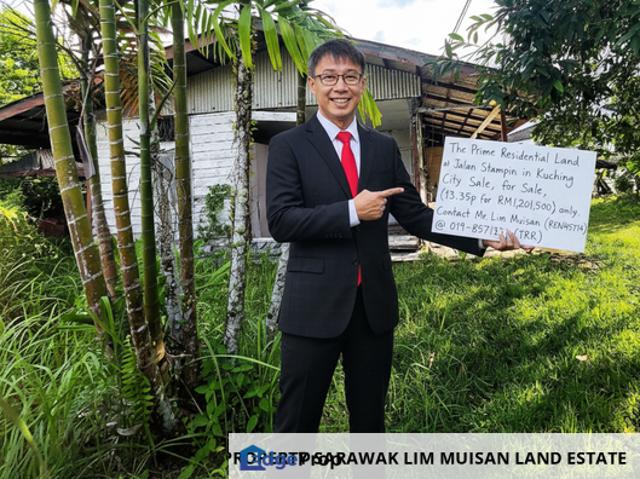 The Prime Residential Land
at Jalan Stampin in Kuching
City Sale, for Sale,
(13.35p for RM1,201,500) only.
Contact Mr. Lim Muisan (REN45774)
(TRR)
PROPERTY SARAWAK LIM MUISAN LAND ESTATE
EdgeProp